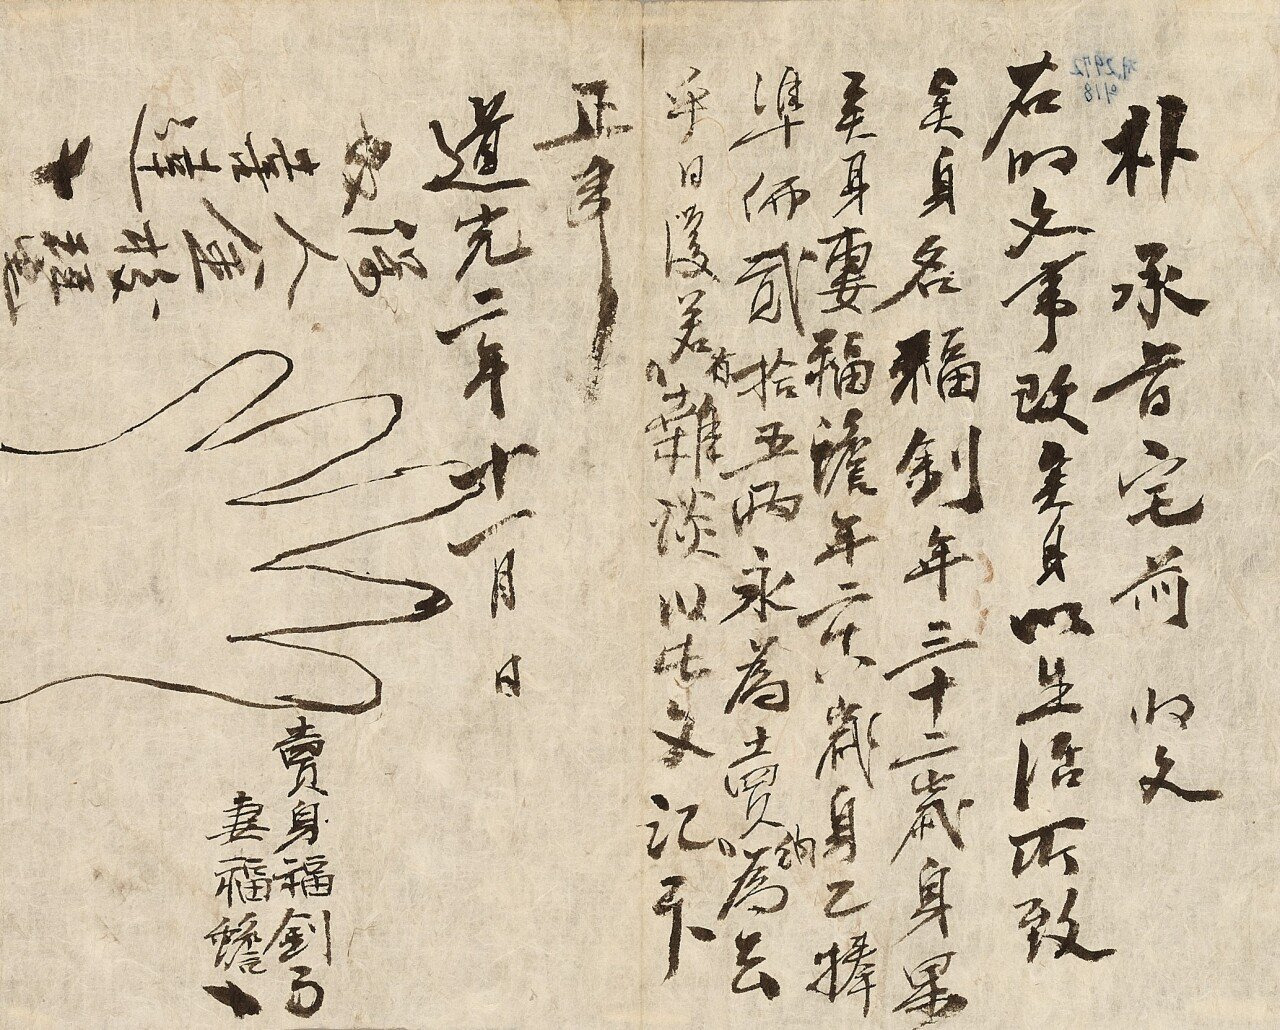 朴承旨宅前 明文
右明文事段矣身以生活所致
矣身名福釗年三十二歲身果
矣身妻福蟾年二十八歲身乙捧
準価貳拾五兩永爲賣納爲去
乎日後若有雜談以此文記卞
正事
道光二年十一月 日
賣身福釗
妻福蟾